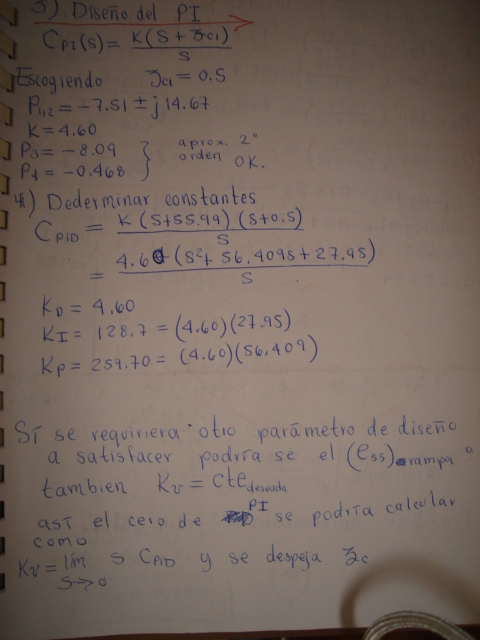 3) Diseño del PI
C_PI(s) = K(S + z_c1) / S
Escogiendo z_c1 = 0.5
P_1,2 = -7.51 ± j 14.67
K = 4.60
P_3 = -8.09 } aprox. 2°
P_4 = -0.468 } orden OK.
4) Dederminar constantes
C_PID = K (S+55.99) (S+0.5) / S
= 4.60 (S² + 56.409s + 27.95) / S
K_D = 4.60
K_I = 128.7 = (4.60)(27.95)
K_P = 259.70 = (4.60)(56.409)
Sí se requiriera otro parámetro de diseño
a satisfacer podría se el (e_ss) rampa o
tambien K_v = cte deseada
así el cero de PI se podría calcular
como
K_v = lím s C_PID y se despeja z_c
S→0